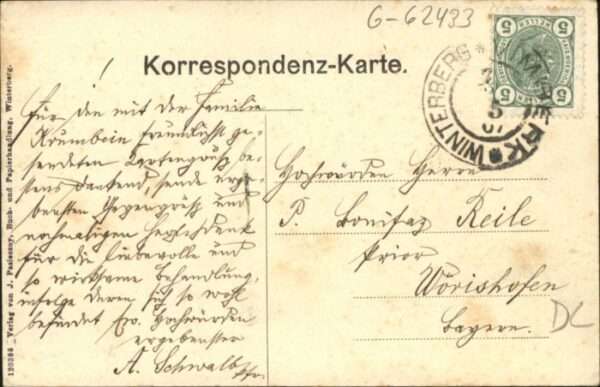 G-62433
Korrespondenz-Karte.
Für den mit der Familie
Krumbein freundlichst ge-
sendeten Kartengruß be-
stens dankend, sende erge-
bensten Gegengruß und
nochmaligen Herzensdank
für die liebevolle und
so wirksame Behandlung,
infolge deren sich so wohl
befindet Ew. Hochwürden
ergebenster
A. Schwalb
Hochwürden Herrn
P. Bonifaz Reile
Prior
Wörishofen
Bayern.
DL
5 5
5 5
WINTERBERG
WINTERBERK
5
07
120364 – Verlag von J. Pasleczny, Buch- und Papierhandlung, Winterberg.